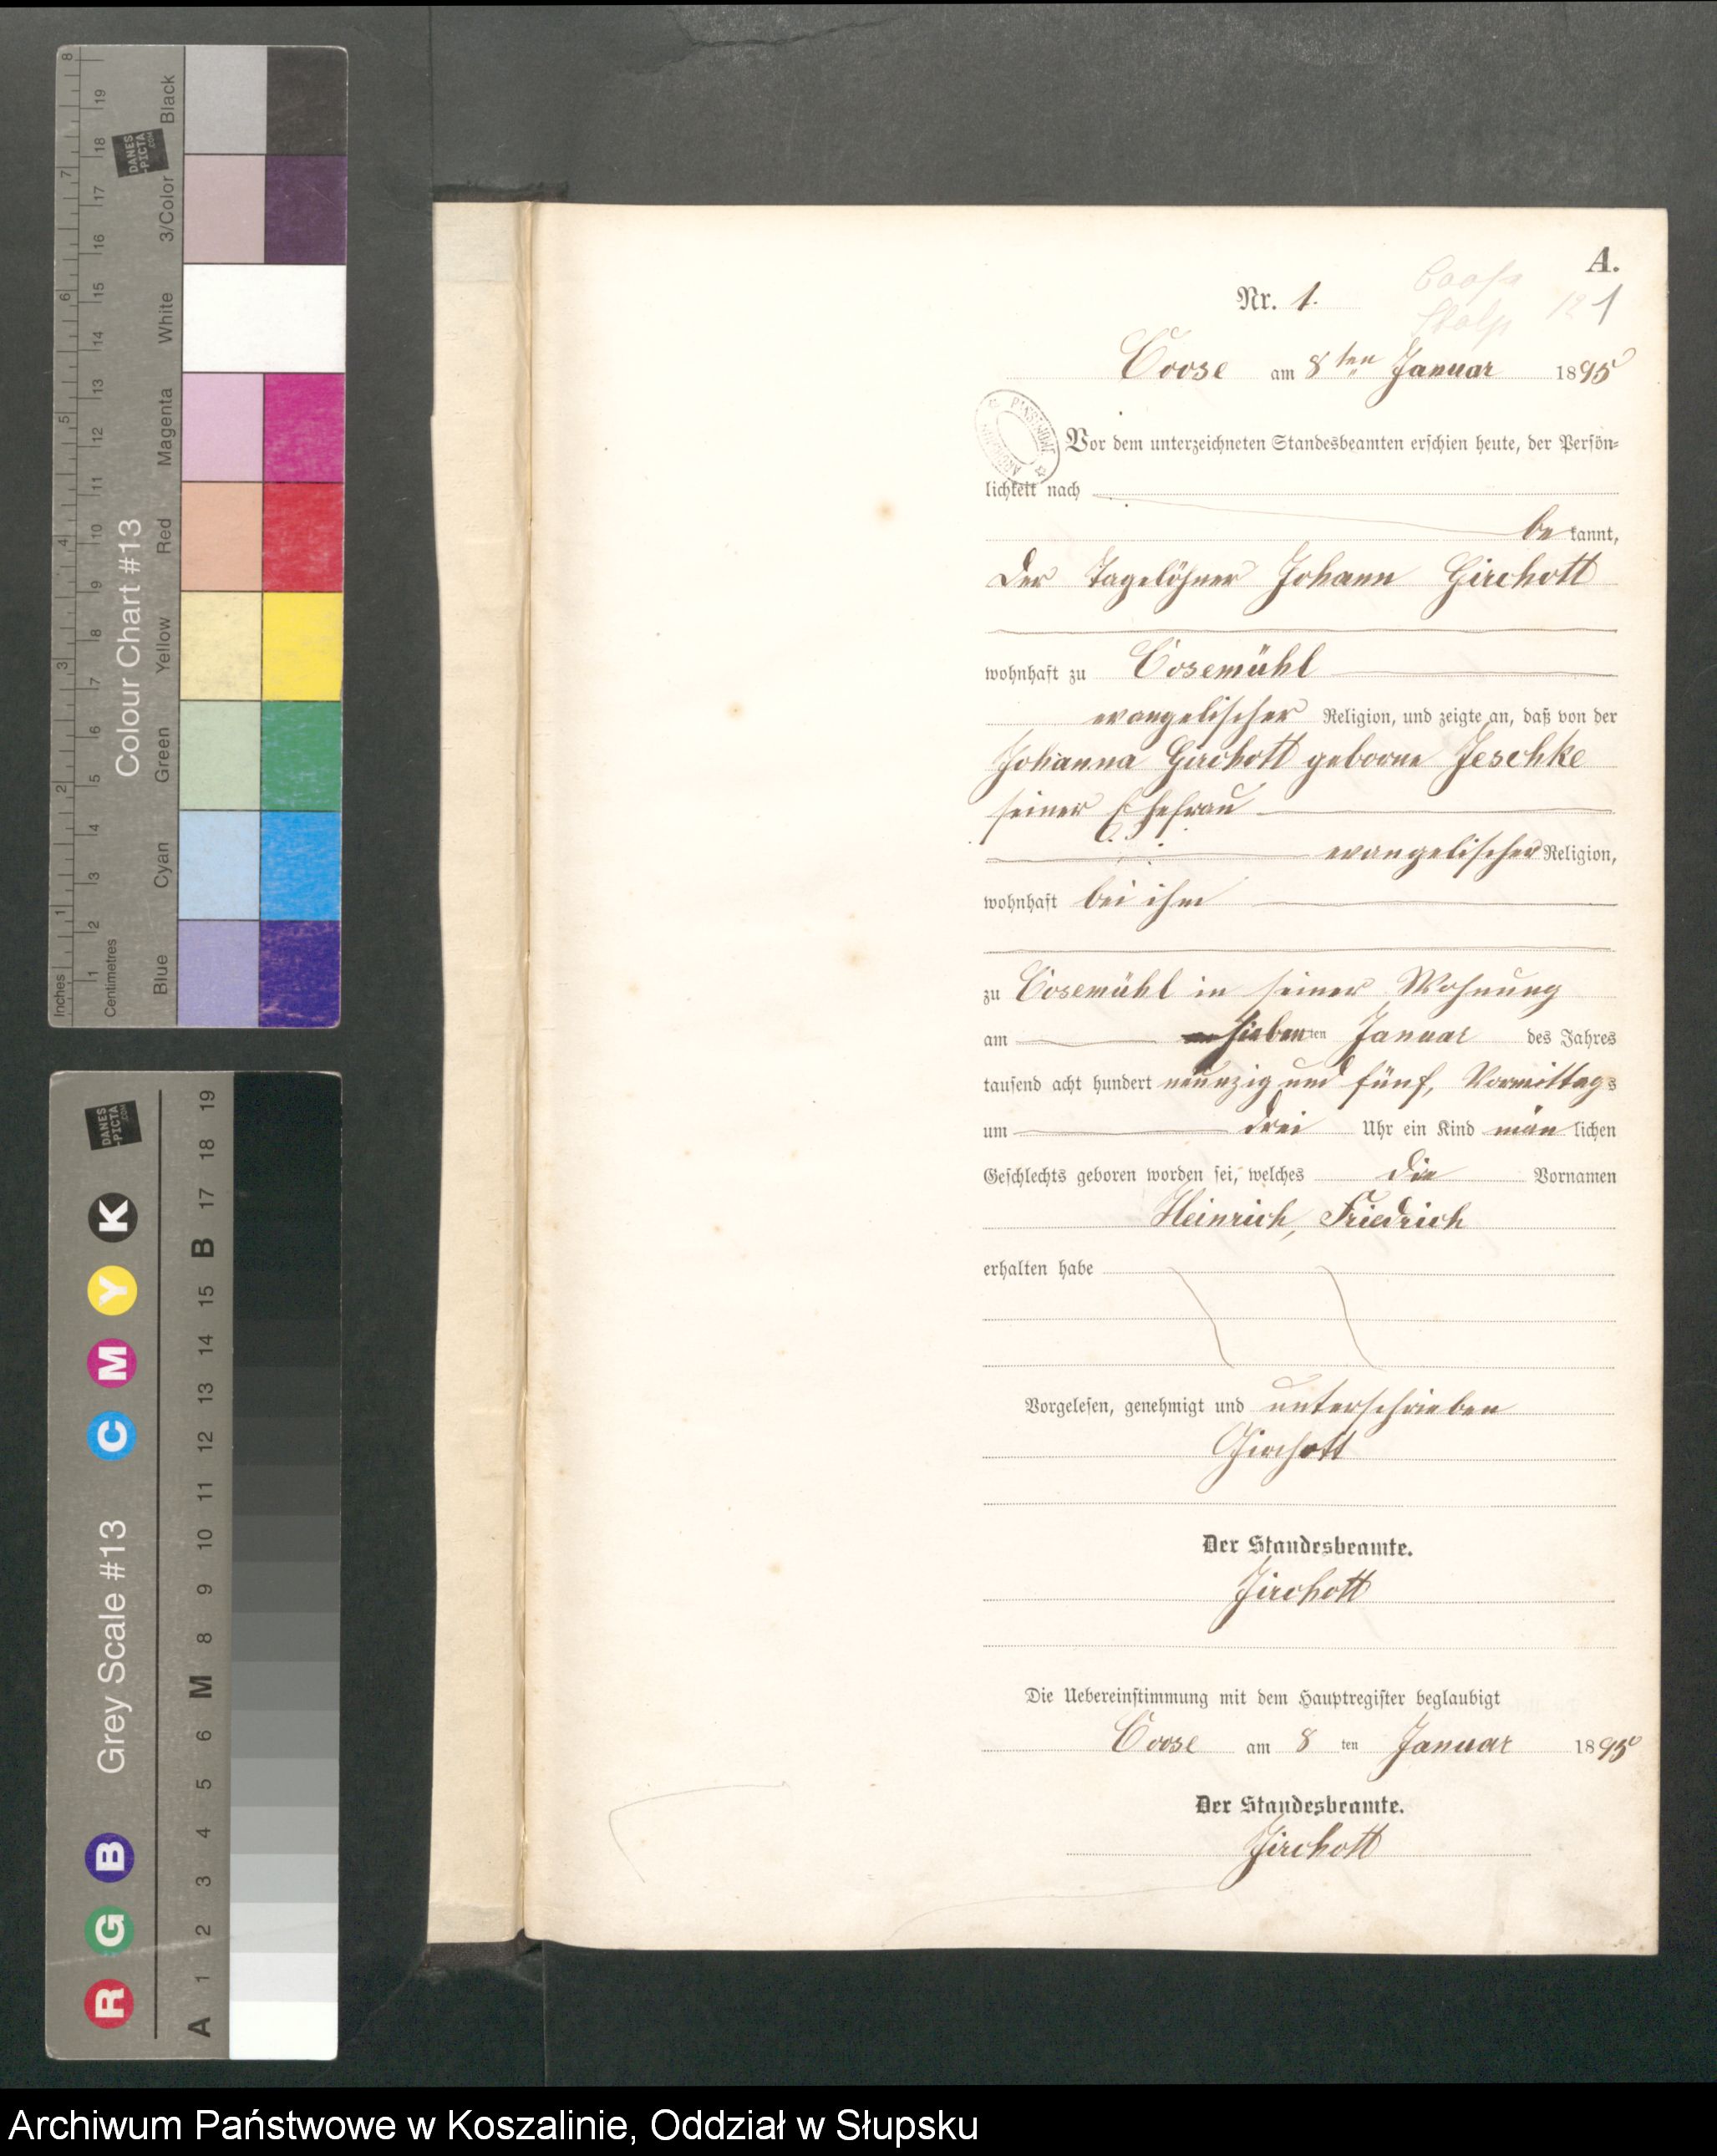 A.
Nr. 1.
1
Coose am 8ten Januar 1895
Vor dem unterzeichneten Standesbeamten erschien heute, der Persön=
lichkeit nach
be kannt,
der Tagelöhner Johann Girchott
wohnhaft zu Cosemühl
evangelischer Religion, und zeigte an, daß von der
Johanna Girchott geborne Jeschke
seiner Ehefrau
evangelischer Religion,
wohnhaft bei ihm
zu Cosemühl in seiner Wohnung
am sieben ten Januar des Jahres
tausend acht hundert neunzig und fünf, Vormittags
um drei Uhr ein Kind män lichen
Geschlechts geboren worden sei, welches die Vornamen
Heinrich, Friedrich
erhalten habe
Vorgelesen, genehmigt und unterschrieben
Girchott
Der Standesbeamte.
Girchott
Die Uebereinstimmung mit dem Hauptregister beglaubigt
Coose am 8 ten Januar 1895
Der Standesbeamte.
Girchott
Colour Chart #13
Inches
Centimetres
Blue Cyan Green Yellow Red Magenta White 3/Color Black
1 2 3 4 5 6 7 8
1 2 3 4 5 6 7 8 9 10 11 12 13 14 15 16 17 18 19
DANES
-PICTA
.COM
Grey Scale #13
R G B C M Y K
A 1 2 3 4 5 6 M 8 9 10 11 12 13 14 15 B 17 18 19
DANES
-PICTA
.COM
Archiwum Państwowe w Koszalinie, Oddział w Słupsku